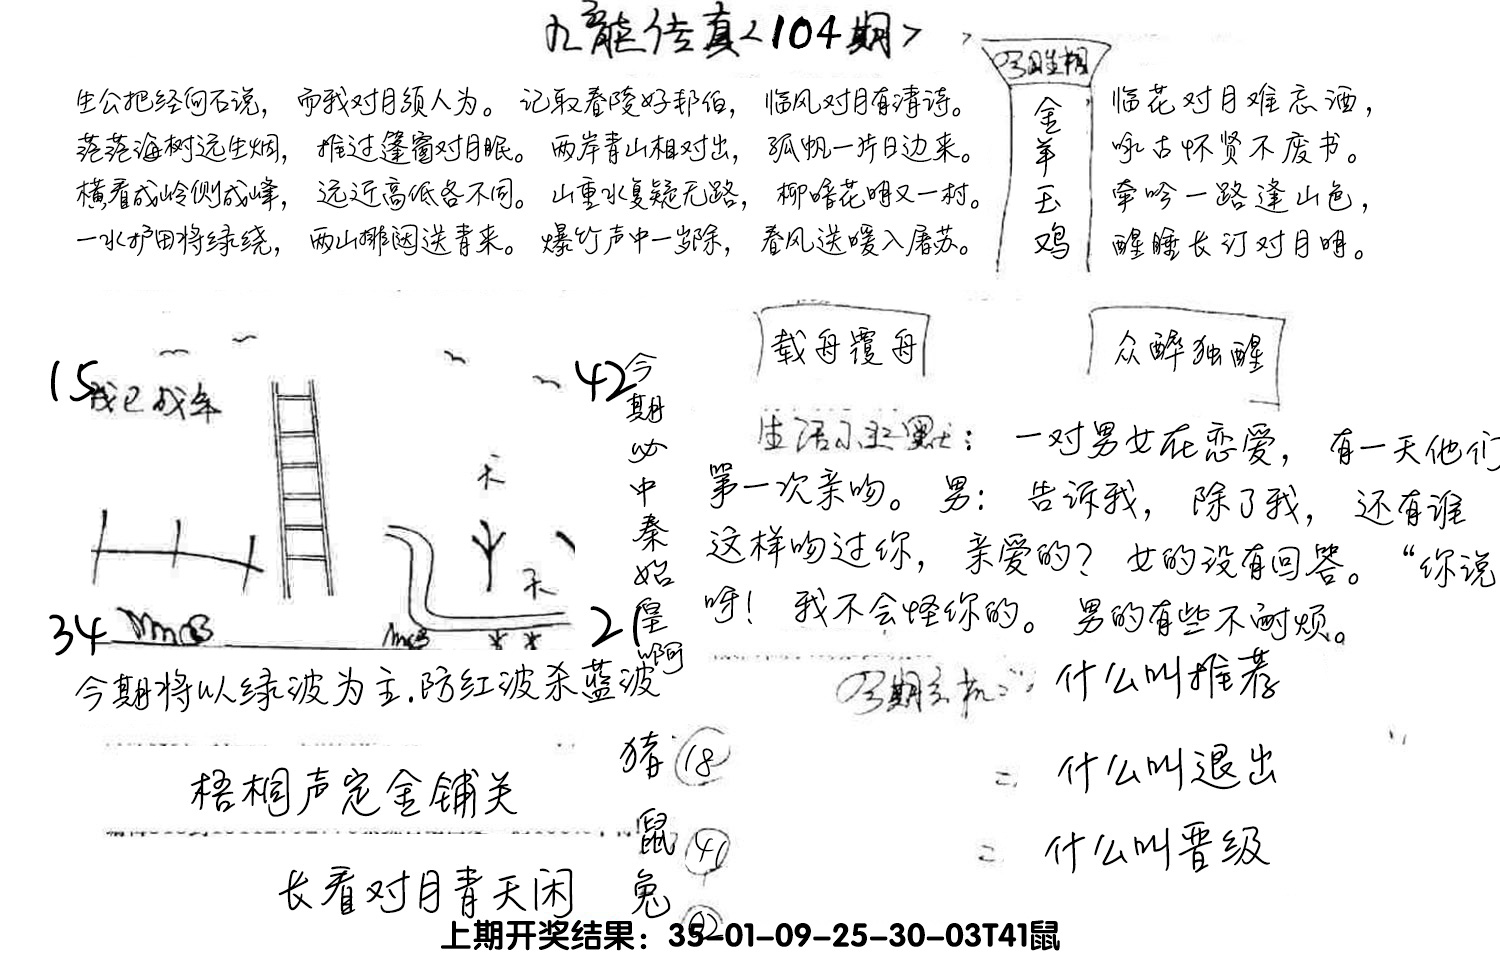 九龙传真<104期>
生公把经向石说，而我对月须人为。记取春陵好邦伯，临风对月有清诗。
茫茫海树远生烟，推过篷窗对月眠。两岸青山相对出，孤帆一片日边来。
横看成岭侧成峰，远近高低各不同。山重水复疑无路，柳暗花明又一村。
一水护田将绿绕，两山排闼送青来。爆竹声中一岁除，春风送暖入屠苏。
今期生相
金羊玉鸡
临花对月难忘酒，
咏古怀贤不废书。
牵吟一路逢山色，
醒睡长汀对月明。
载舟覆舟
众醉独醒
15
42
34
21
天
天
今期必中秦始皇啊
生活小幽默：一对男女在恋爱，有一天他们
第一次亲吻。男：告诉我，除了我，还有谁
这样吻过你，亲爱的？女的没有回答。“你说
呀！我不会怪你的。男的有些不耐烦。
今期将以绿波为主.防红波杀蓝波
今期玄机：什么叫推荐
= 什么叫退出
= 什么叫晋级
猪 18
鼠 41
兔 02
梧桐声定金铺关
长看对月青天闲
上期开奖结果：35-01-09-25-30-03T41鼠